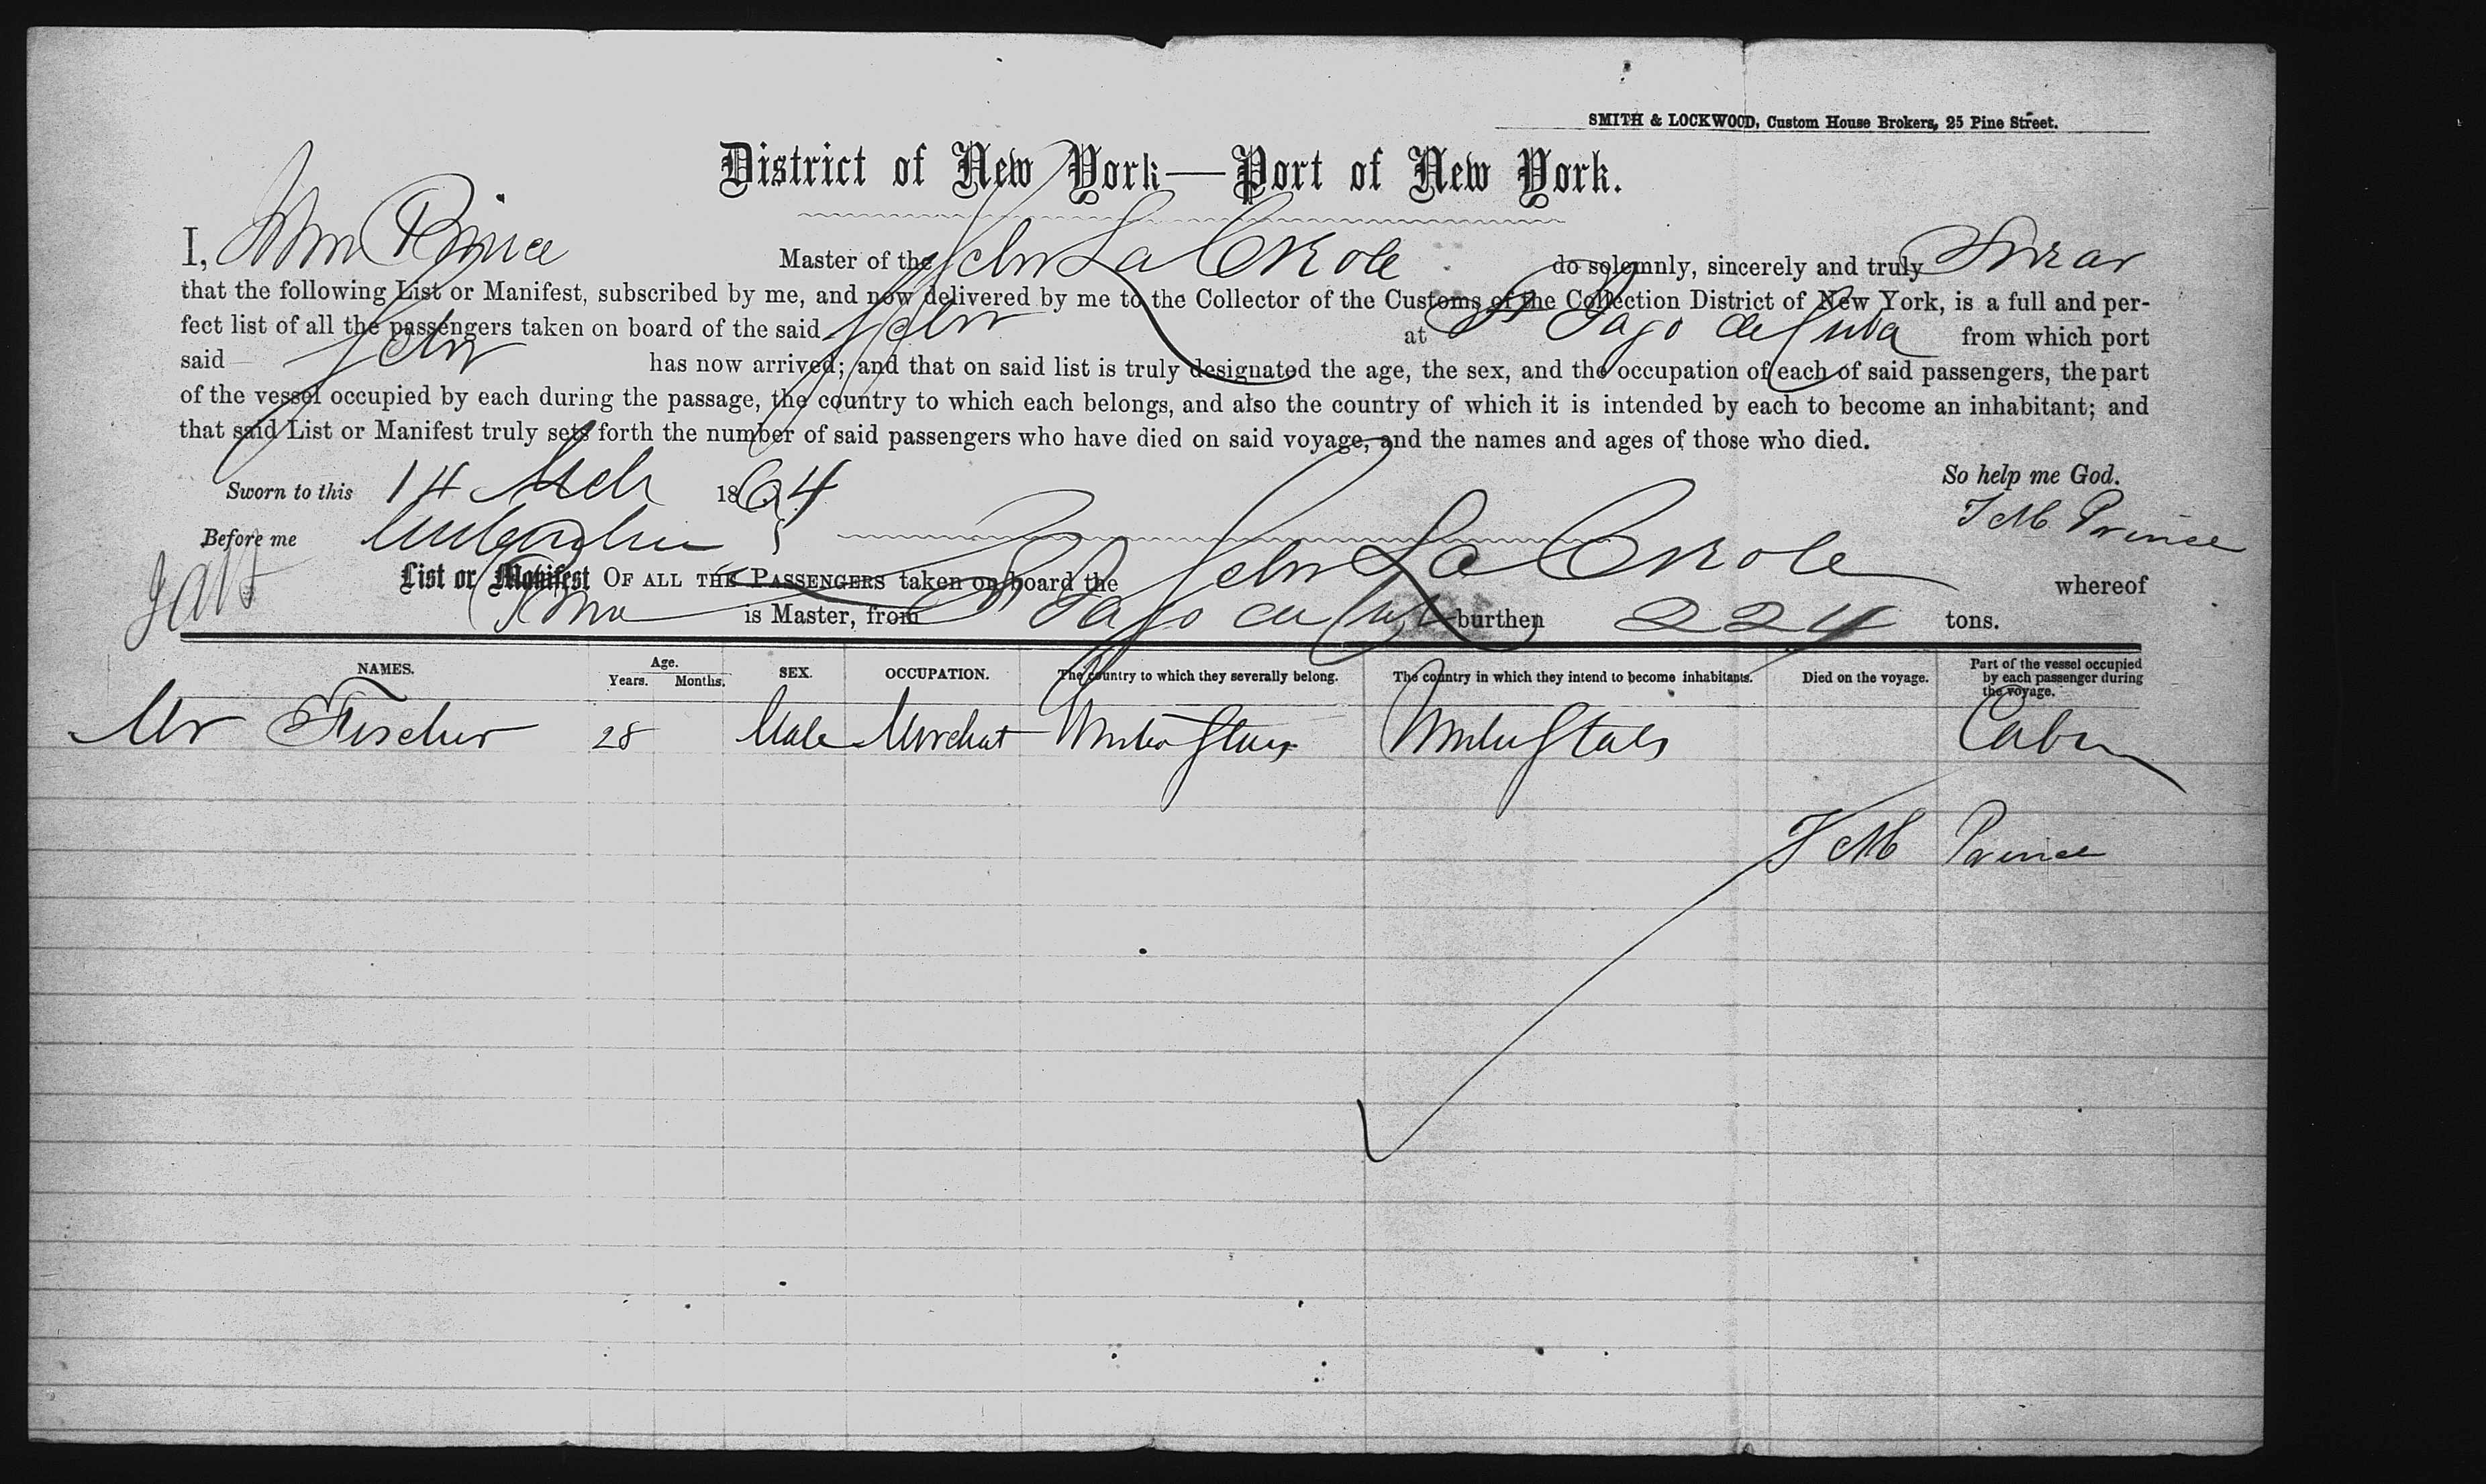 SMITH & LOCKWOOD, Custom House Brokers, 25 Pine Street.
District of New York—Port of New York.
I, Prince Master of the Schr La Creole do solemnly, sincerely and truly Swear
that the following List or Manifest, subscribed by me, and now delivered by me to the Collector of the Customs of the Collection District of New York, is a full and per-
fect list of all the passengers taken on board of the said Schr at St Iago de Cuba from which port
said Schr has now arrived; and that on said list is truly designated the age, the sex, and the occupation of each of said passengers, the part
of the vessel occupied by each during the passage, the country to which each belongs, and also the country of which it is intended by each to become an inhabitant; and
that said List or Manifest truly sets forth the number of said passengers who have died on said voyage, and the names and ages of those who died.
So help me God.
Sworn to this 14 Mch 1864
J M Prince
Before me
List or Manifest OF ALL THE PASSENGERS taken on board the Schr La Creole whereof
is Master, from St Iago de Cuba burthen 224 tons.
NAMES. Age. Years. Months. SEX. OCCUPATION. The country to which they severally belong. The country in which they intend to become inhabitants. Died on the voyage. Part of the vessel occupied by each passenger during the voyage.
Mr Fischer 28 Male Merchat United States United States Cabin
J M Prince